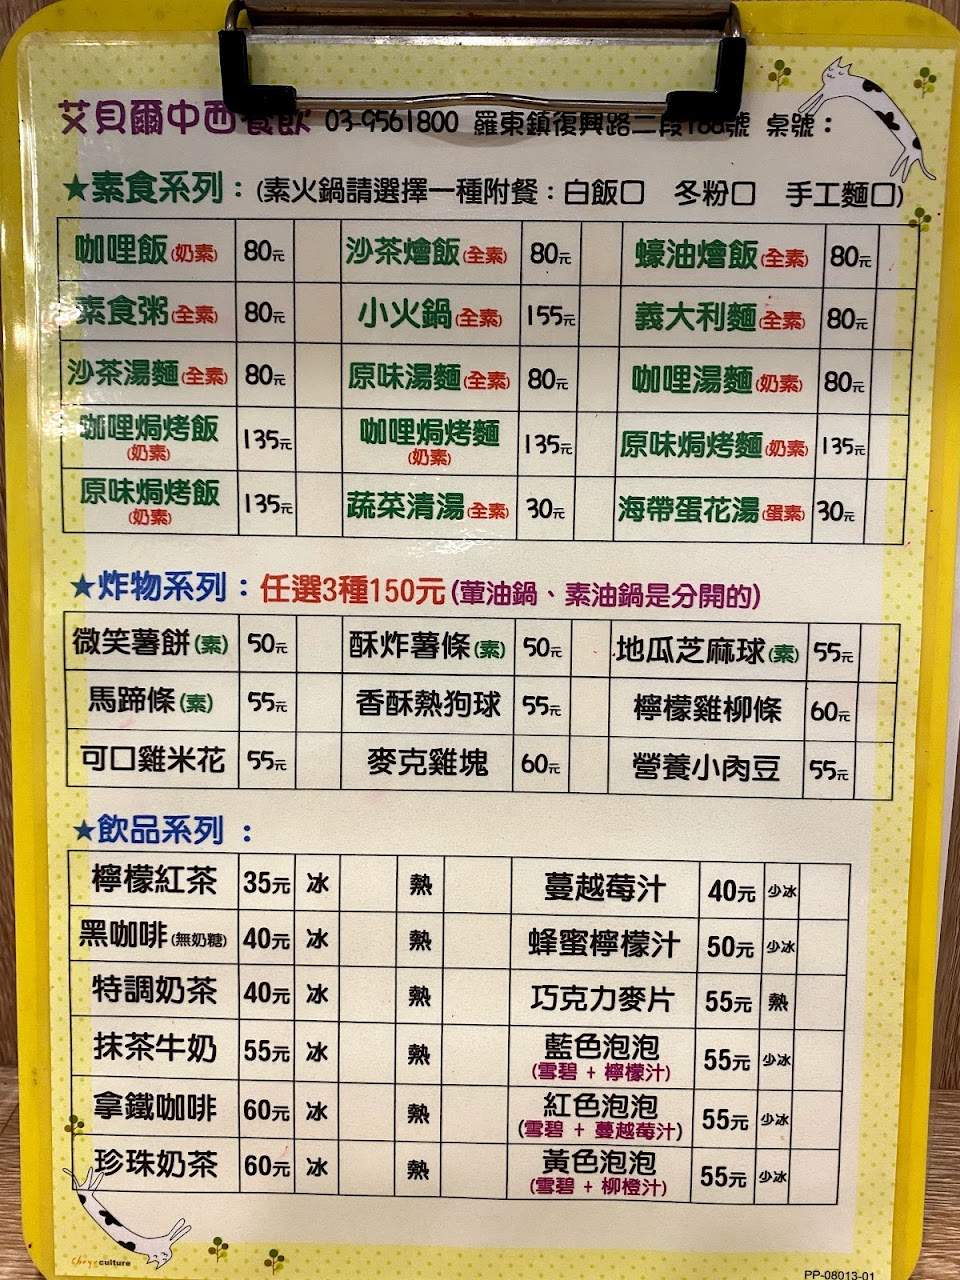 艾貝爾中西餐飲 03-9561800 羅東鎮復興路二段188號 桌號：
★素食系列：(素火鍋請選擇一種附餐：白飯□ 冬粉□ 手工麵□)
咖哩飯(奶素) 80元 沙茶燴飯(全素) 80元 蠔油燴飯(全素) 80元
素食粥(全素) 80元 小火鍋(全素) 155元 義大利麵(全素) 80元
沙茶湯麵(全素) 80元 原味湯麵(全素) 80元 咖哩湯麵(奶素) 80元
咖哩焗烤飯(奶素) 135元 咖哩焗烤麵(奶素) 135元 原味焗烤麵(奶素) 135元
原味焗烤飯(奶素) 135元 蔬菜清湯(全素) 30元 海帶蛋花湯(蛋素) 30元
★炸物系列：任選3種150元(葷油鍋、素油鍋是分開的)
微笑薯餅(素) 50元 酥炸薯條(素) 50元 地瓜芝麻球(素) 55元
馬蹄條(素) 55元 香酥熱狗球 55元 檸檬雞柳條 60元
可口雞米花 55元 麥克雞塊 60元 營養小肉豆 55元
★飲品系列：
檸檬紅茶 35元 冰 熱 蔓越莓汁 40元 少冰
黑咖啡(無奶糖) 40元 冰 熱 蜂蜜檸檬汁 50元 少冰
特調奶茶 40元 冰 熱 巧克力麥片 55元 熱
抹茶牛奶 55元 冰 熱 藍色泡泡(雪碧 + 檸檬汁) 55元 少冰
拿鐵咖啡 60元 冰 熱 紅色泡泡(雪碧 + 蔓越莓汁) 55元 少冰
珍珠奶茶 60元 冰 熱 黃色泡泡(雪碧 + 柳橙汁) 55元 少冰
culture
PP-08013-01